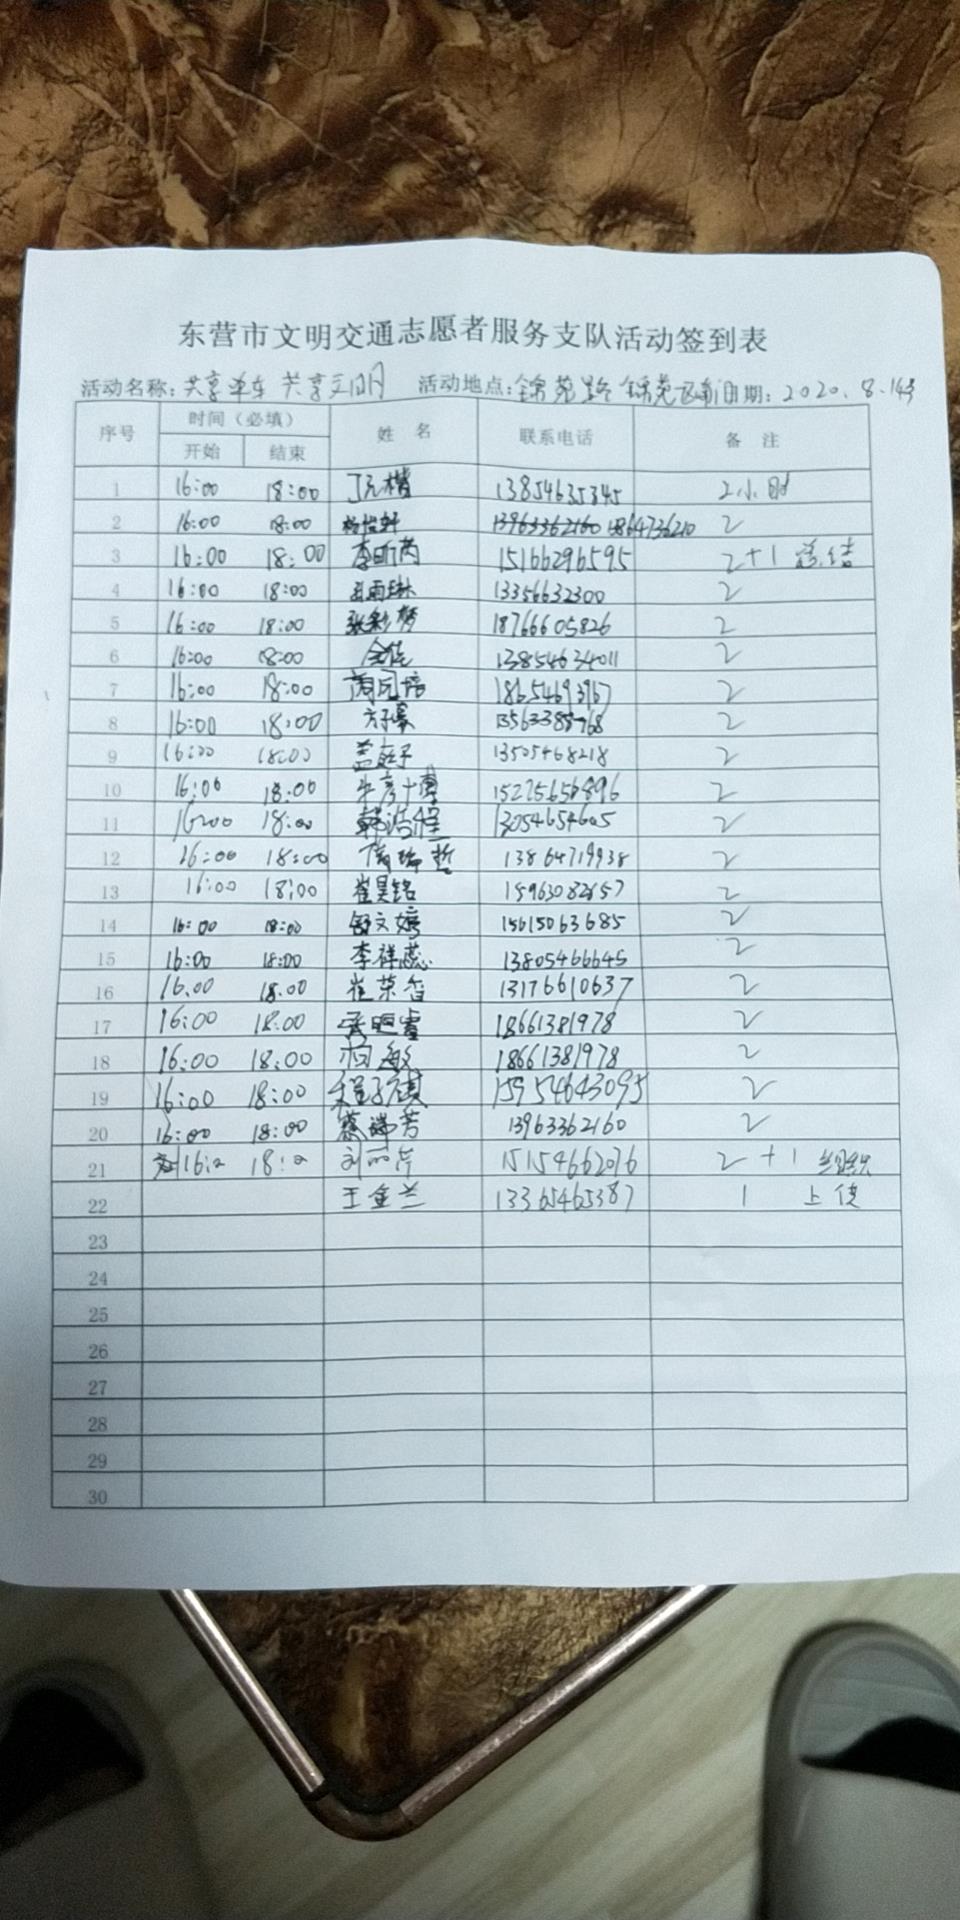 东营市文明交通志愿者服务支队活动签到表
活动名称：共享单车 共享文明 活动地点：锦苑路 锦苑 日期：2020.8.14
序号 时间（必填） 姓名 联系电话 备注
开始 结束
1 16:00 18:00 丁元楷 13854635345 2小时
2 16:00 18:00 杨怡轩 13963362160 2
3 16:00 18:00 李昕芮 15166296595 2+1 总结
4 16:00 18:00 13356632300 2
5 16:00 18:00 张彩梦 18766605826 2
6 16:00 18:00 13854634011 2
7 16:00 18:00 18654693967 2
8 16:00 18:00 方子豪 2
9 16:00 18:00 盖子 13505468218 2
10 16:00 18:00 朱彦博 15275656896 2
11 16:00 18:00 韩浩 13054654605 2
12 16:00 18:00 隋瑞哲 13864719938 2
13 16:00 18:00 崔昊铭 15963082657 2
14 16:00 18:00 舒文婷 15615063685 2
15 16:00 18:00 李祥蕊 13805466645 2
16 16.00 18.00 崔荣香 13176610637 2
17 16:00 18:00 18661381978 2
18 16:00 18:00 敏 18661381978 2
19 16:00 18:00 程子祺 15954643095 2
20 16:00 18:00 蔡瑞芳 13963362160 2
21 刘丽萍 15154662076 2+1 组织
22 王金兰 13365465387 1 上传
23
24
25
26
27
28
29
30